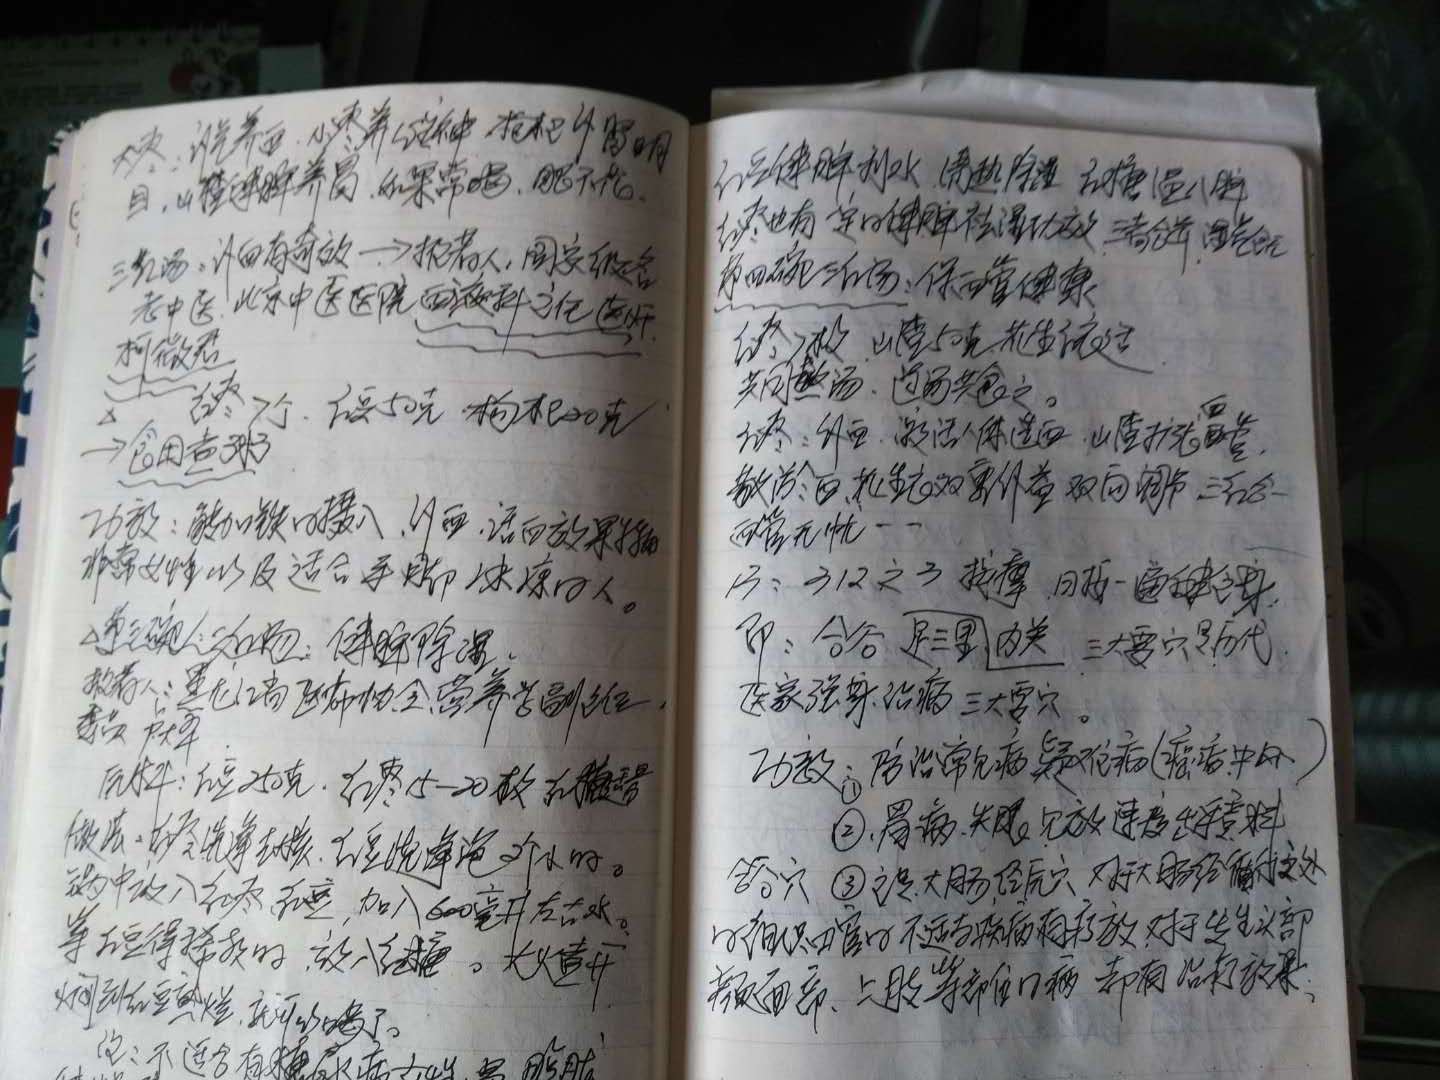 目,山楂健脾养胃,如果常喝,
三红汤:补血有奇效→推荐人,国家级名
老中医,北京中医医院血液科主任医师
柯微君
红枣7个,红豆50克,枸杞20克
功效:能加铁的摄入,补血,活血效果特别
非常女性以及适合手脚冰凉的人。
三红汤:健脾除湿。
推荐人:黑龙江省医师协会营养学副主任
委员
红豆250克,红枣15—20枚 红糖适量
做法:红枣洗净去核,红豆洗净泡2个小时。
锅中放入红枣,红豆,加入600毫升左右水。
等红豆得稀软时,放入红糖。大火煮开
焖到红豆熟烂,就可以喝了。
不适合有糖尿病
红豆健脾利水,清热除湿 红糖温八脚
红枣也有一定的健脾祛湿功效,三者合并,湿气全无
第四碗三红汤:保血管健康
红枣7枚 山楂50克 花生红衣
共同熬汤,
红枣:补血,激活人体造血,山楂扩张血管,
花生衣双向调节 三红合一
血管无忧——
312之3 按摩 日按一遍
即:合谷 足三里 内关 三大要穴是历代
医家强身治病三大要穴。
功效:①防治常见病疑难病(癌病中风)
②胃病,失眠,见效速度出乎意料
合谷穴 ③是大肠经原穴 对于大肠经循行之处
的组织器官的不适与疾病有疗效,对于发生头部
颜面部、上肢等部位的病 都有治疗效果,